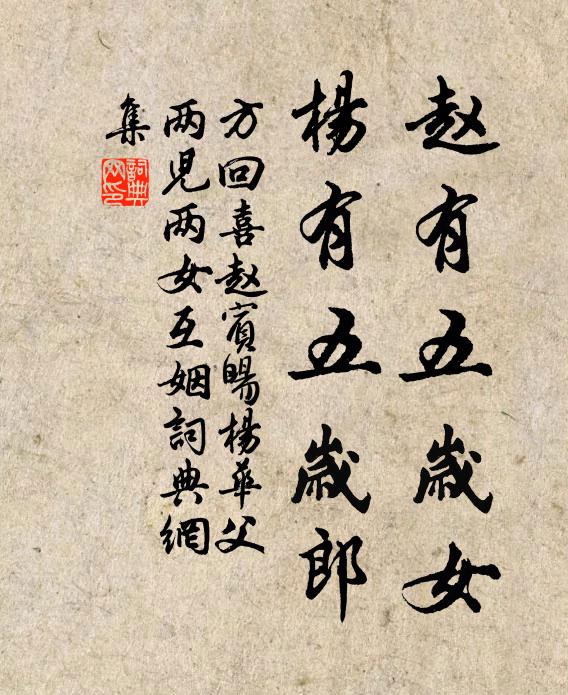 赵有五歲女
楊有五歲郎
方回喜赵賓暘楊華父
两児两女互姻詞典網
集
詞典
网印